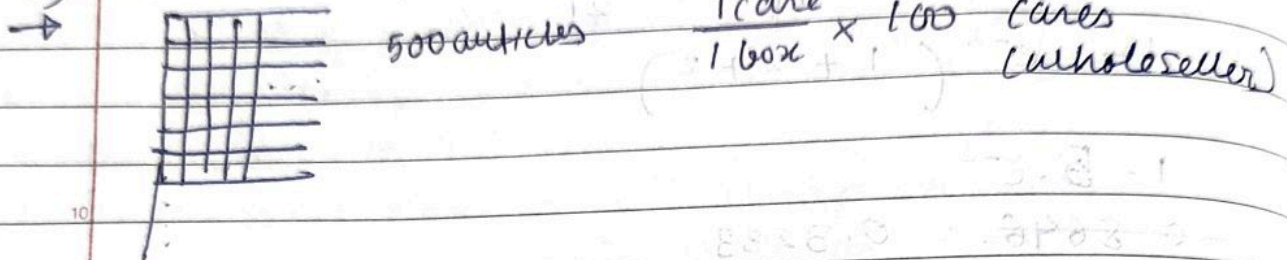 → 500 articles 1 care / 1 box × 100 cares
(wholeseller)
10